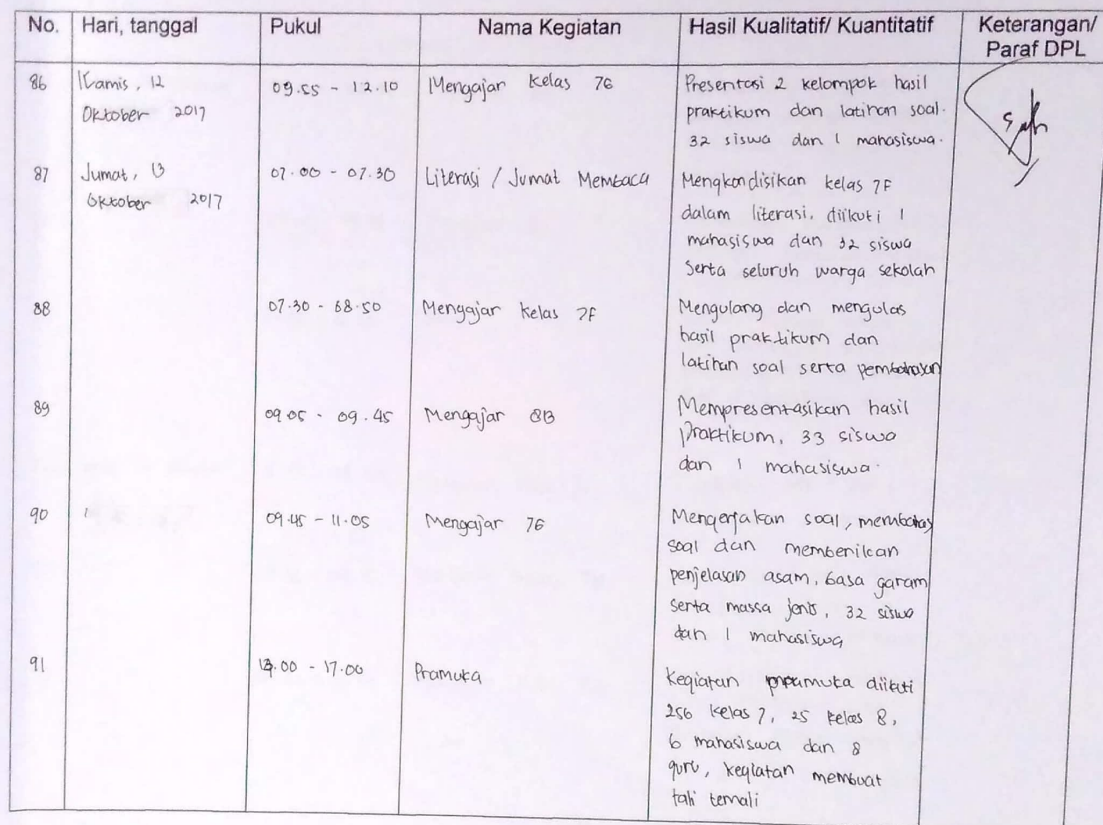 No. Hari, tanggal Pukul Nama Kegiatan Hasil Kualitatif/ Kuantitatif Keterangan/
Paraf DPL
86 Kamis, 12 09.55 - 12.10 Mengajar Kelas 7G Presentasi 2 kelompok hasil
Oktober 2017 praktikum dan latihan soal.
32 siswa dan 1 mahasiswa.
87 Jumat, 13 07.00 - 07.30 Literasi / Jumat Membaca Mengkondisikan kelas 7F
Oktober 2017 dalam literasi, diikuti 1
mahasiswa dan 32 siswa
Serta seluruh warga sekolah
88 07.30 - 08.50 Mengajar kelas 7F Mengulang dan mengulas
hasil praktikum dan
latihan soal serta pembahasan
89 09.05 - 09.45 Mengajar 8B Mempresentasikan hasil
Praktikum, 33 siswa
dan 1 mahasiswa.
90 09.45 - 11.05 Mengajar 7G Mengerjakan soal, membahas
soal dan memberikan
penjelasan asam, basa garam
serta massa jenis, 32 siswa
dan 1 mahasiswa
91 - 17.00 Pramuka Kegiatan pramuka diikuti
256 kelas 7, 25 kelas 8,
6 mahasiswa dan 8
guru, kegiatan membuat
tali temali